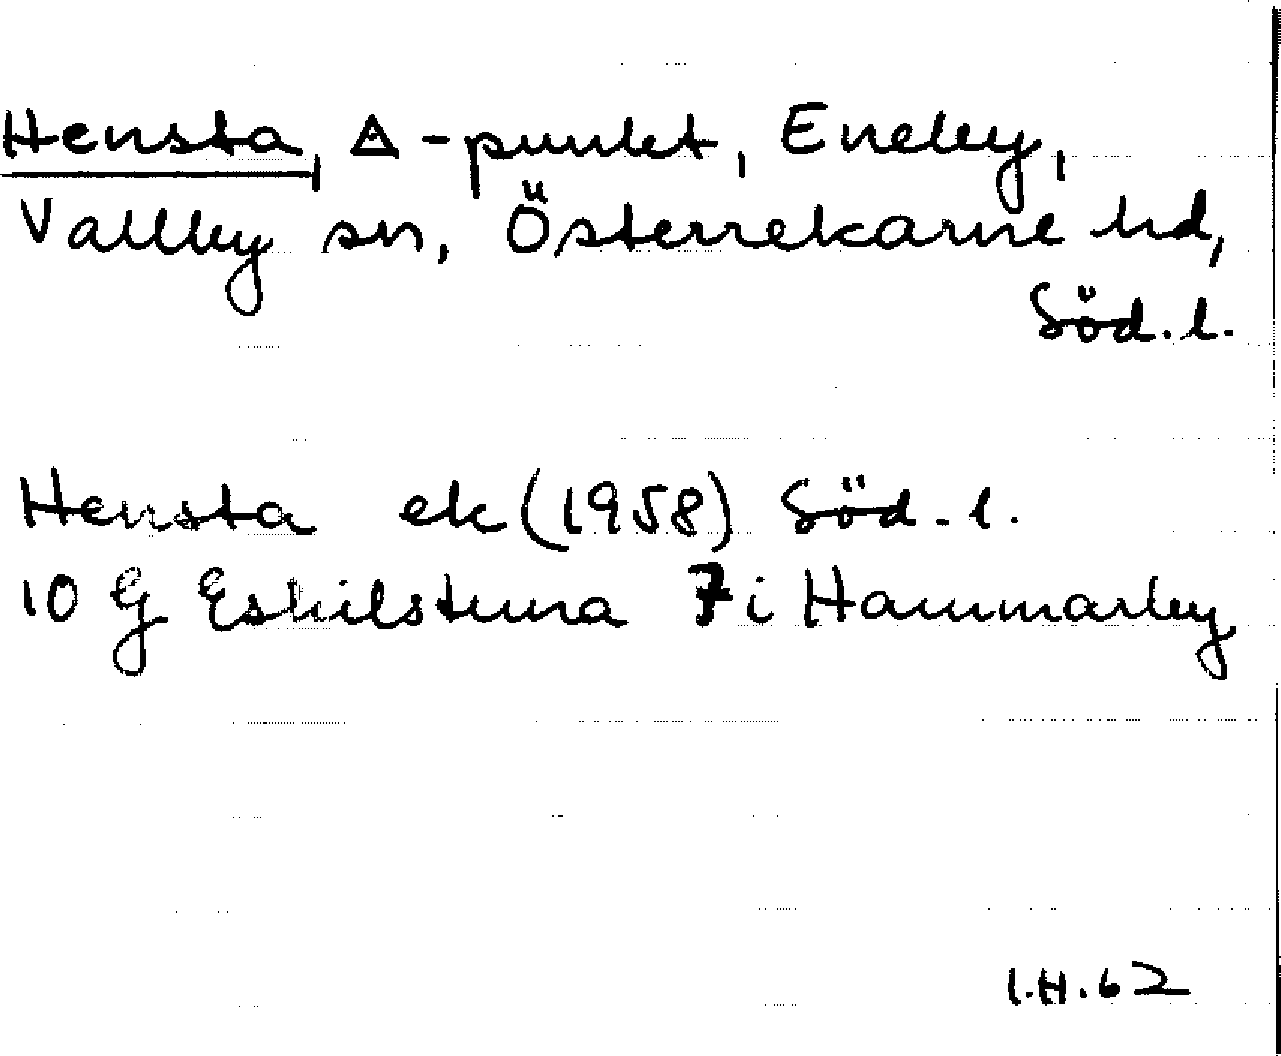 Hensta, △-punkt, Eneby,
Vallby sn, Österrekarne hd,
Söd. l.
Hensta ek (1958) Söd. l.
10 G Eskilstuna 7 i Hammarby
I.H. 62